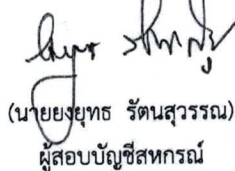 (นายยงยุทธ  รัตนสุวรรณ)
ผู้สอบบัญชีสหกรณ์